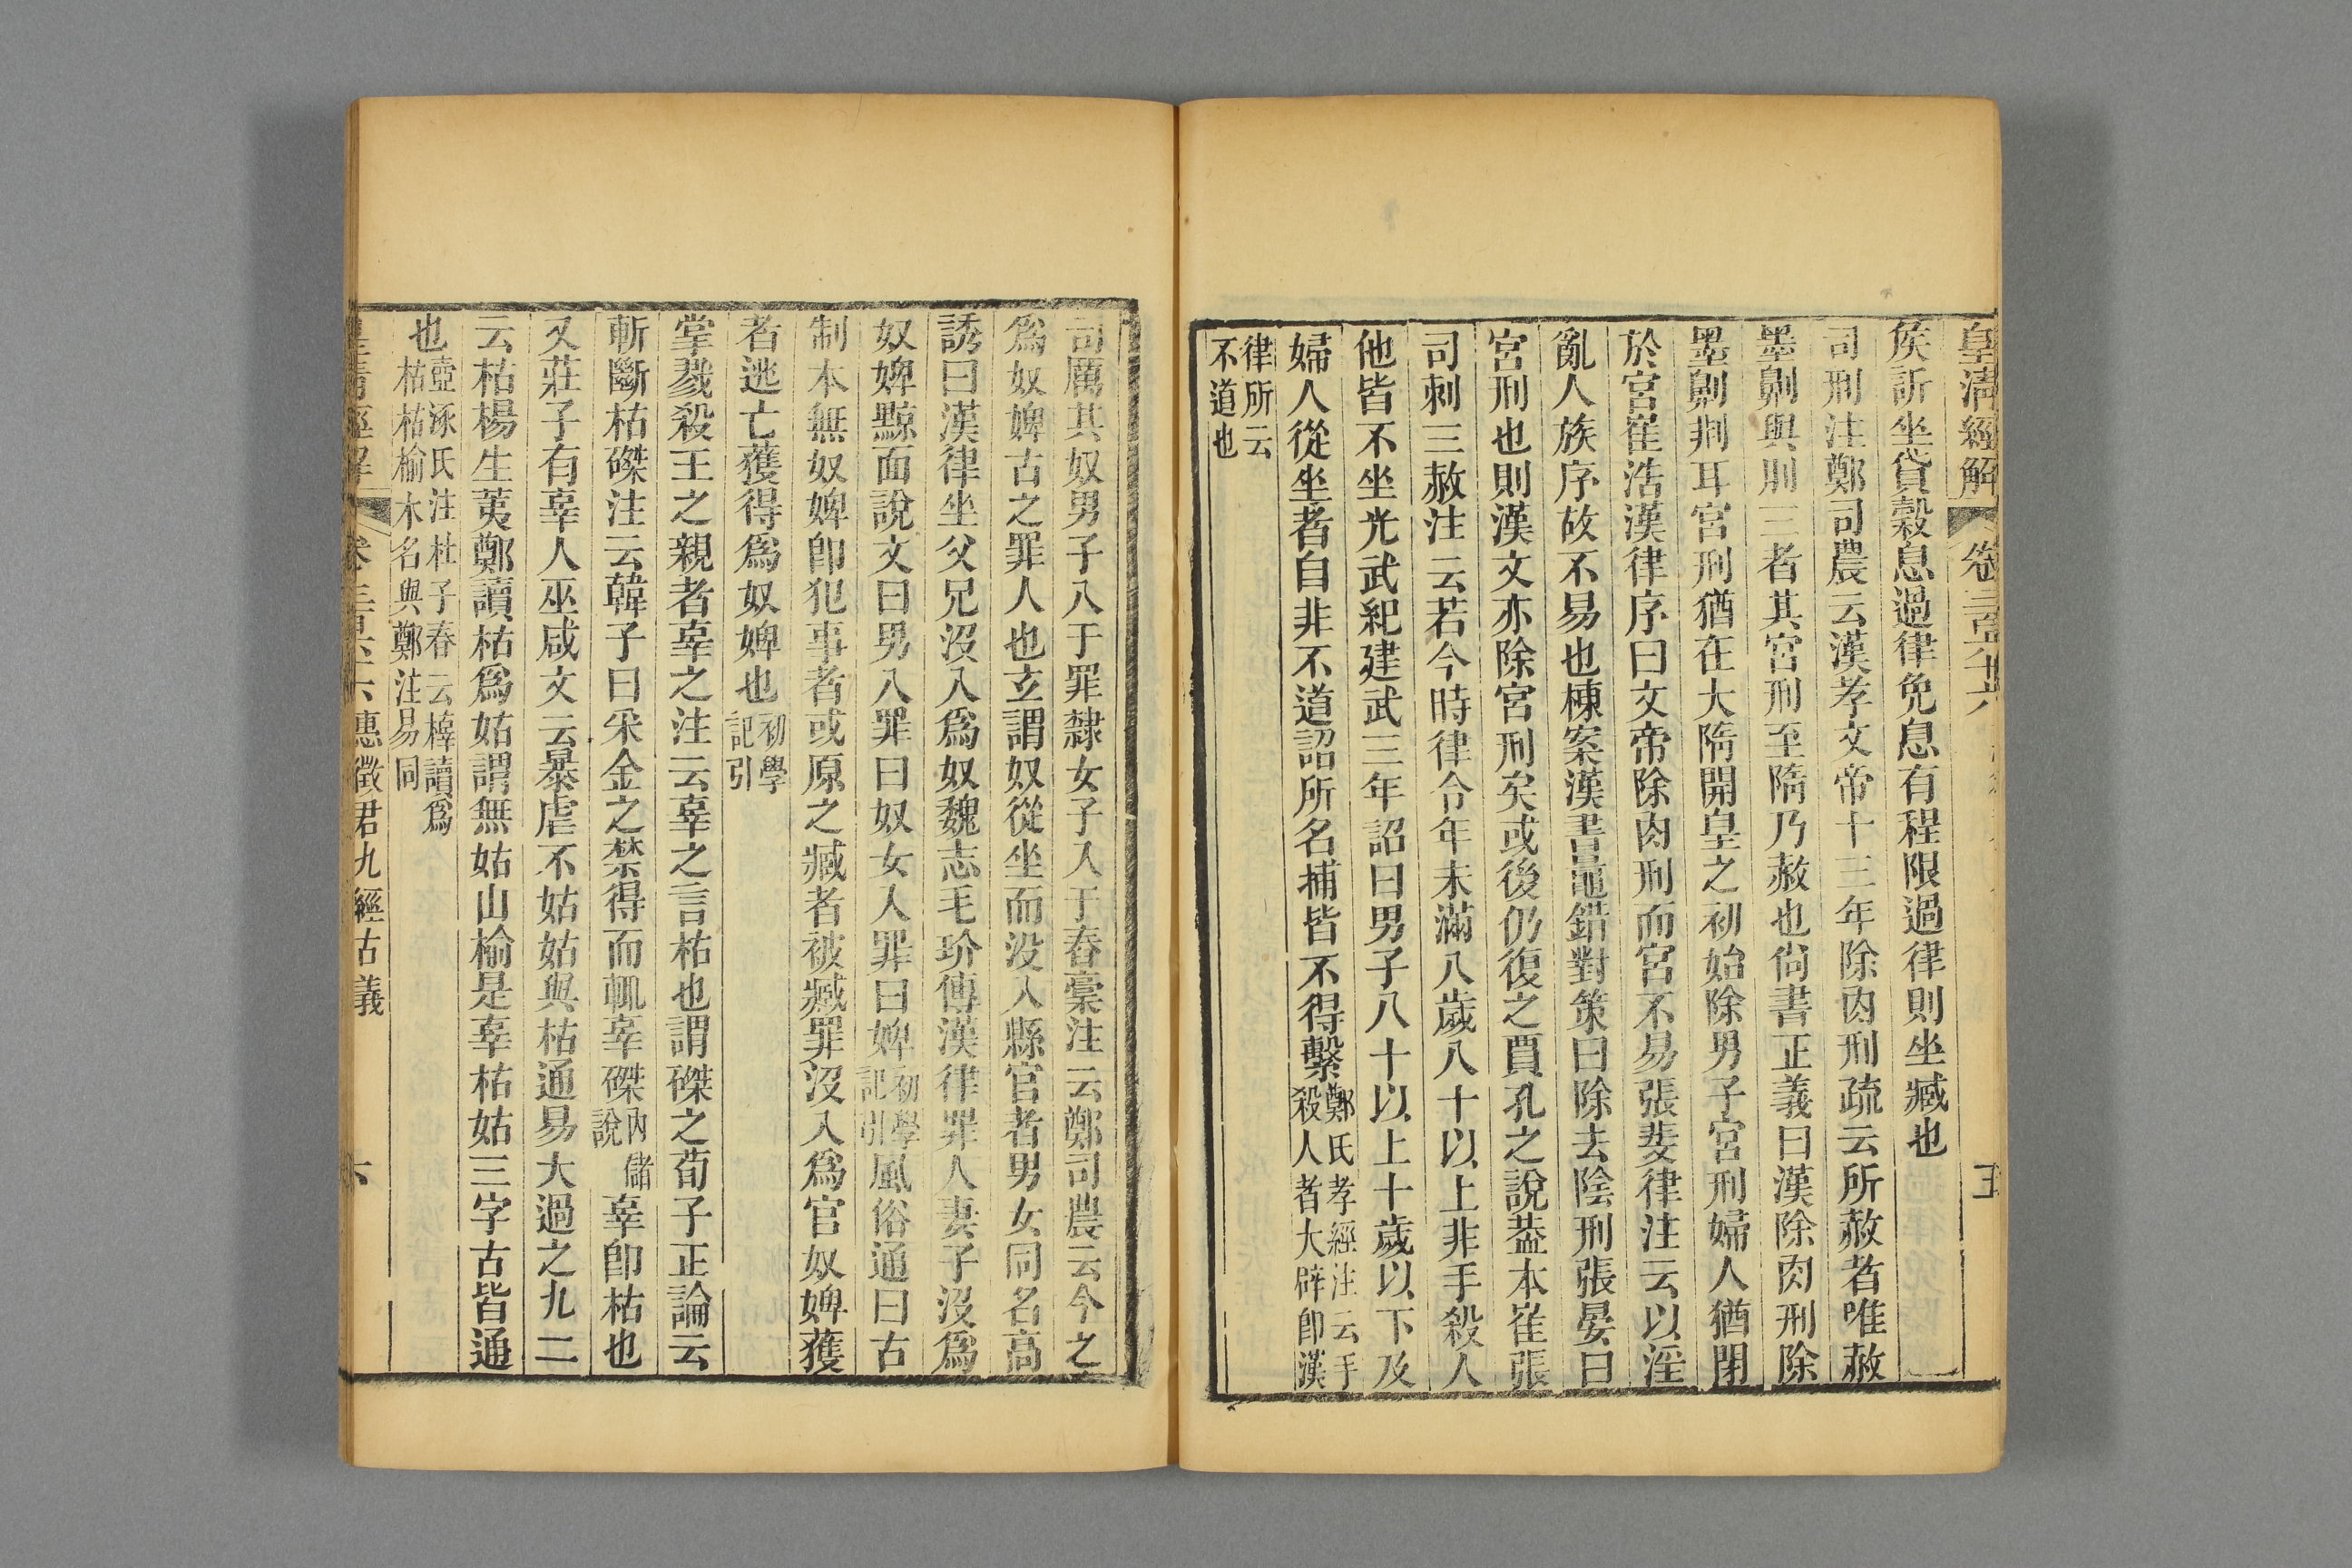 皇清經解 卷三百六十六 五
矦訢坐貸穀息過律免息有程限過律則坐臧也
司刑注鄭司農云漢孝文帝十三年除肉刑疏云所赦者唯赦
墨劓與刖三者其宮刑至隋乃赦也尙書正義曰漢除肉刑除
墨劓剕耳宮刑猶在大隋開皇之初始除男子宮刑婦人猶閉
於宮崔浩漢律序曰文帝除肉刑而宮不易張斐律注云以淫
亂人族序故不易也棟案漢書鼂錯對策曰除去陰刑張晏曰
宮刑也則漢文亦除宮刑矣或後仍復之賈孔之說葢本崔張
司刺三赦注云若今時律令年未滿八歲八十以上非手殺人
他皆不坐光武紀建武三年詔曰男子八十以上十歲以下及
婦人從坐者自非不道詔所名捕皆不得繫鄭氏孝經注云手
殺人者大辟卽漢
律所云
不道也
司厲其奴男子入于罪隸女子入于舂稾注云鄭司農云今之
爲奴婢古之罪人也玄謂奴從坐而没入縣官者男女同名高
誘曰漢律坐父兄沒入爲奴魏志毛玠傳漢律罪人妻子沒爲
奴婢黥面說文曰男入罪曰奴女人罪曰婢初學
記引風俗通曰古
制本無奴婢卽犯事者或原之臧者被臧罪沒入爲官奴婢獲
者逃亡獲得爲奴婢也初學
記引
掌戮殺王之親者辜之注云辜之言枯也謂磔之荀子正論云
斬斷枯磔注云韓子曰采金之禁得而輒辜磔內儲
說辜卽枯也
又莊子有辜人巫咸文云暴虐不姑姑與枯通易大過之九二
云枯楊生荑鄭讀枯爲姑謂無姑山榆是辜枯姑三字古皆通
也壺涿氏注杜子春云橭讀爲
枯枯榆木名與鄭注易同
皇清經解 卷三百六十六惠徵君九經古義 六